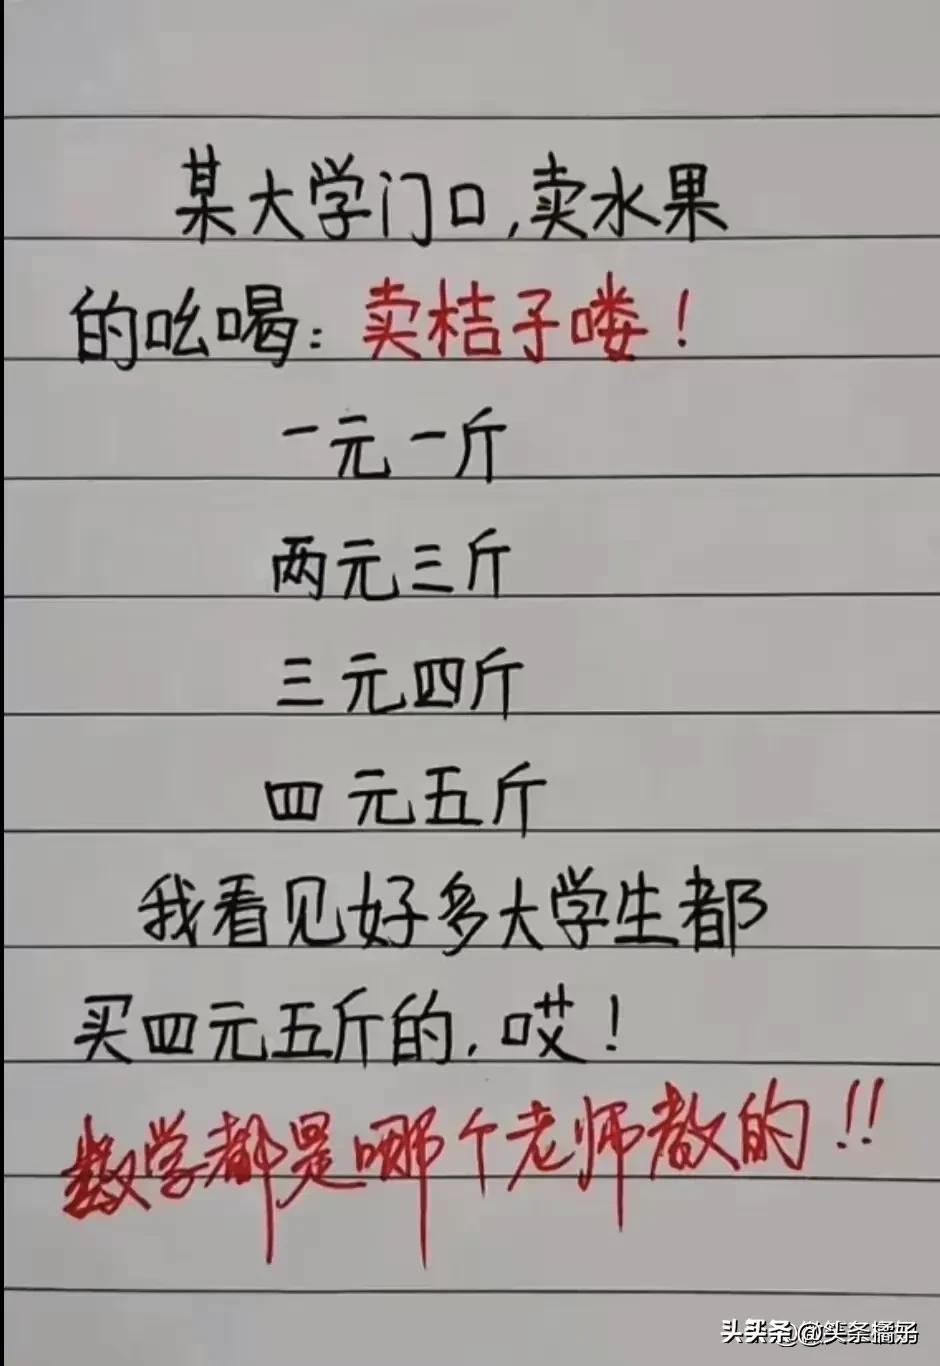 某大学门口,卖水果
的吆喝:卖桔子喽!
一元一斤
两元三斤
三元四斤
四元五斤
我看见好多大学生都
买四元五斤的,哎!
数学都是哪个老师教的!!
头条@笑条橘子